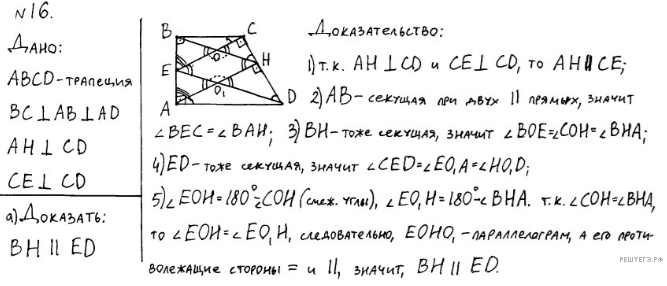 №16.
Дано:
ABCD - трапеция
BC⊥AB⊥AD
AH⊥CD
CE⊥CD
а) Доказать:
BH || ED
B C
E H
O
O₁
A D
Доказательство:
1) т.к. AH⊥CD и CE⊥CD, то AH||CE;
2) AB - секущая при двух || прямых, значит
∠BEC=∠BAH; 3) BH - тоже секущая, значит ∠BOE=∠COH=∠BHA;
4) ED - тоже секущая, значит ∠CED=∠EO₁A=∠HO₁D;
5) ∠EOH=180°-∠COH (смеж. углы), ∠EO₁H=180°-∠BHA. т.к. ∠COH=∠BHA,
то ∠EOH=∠EO₁H, следовательно, EOHO₁ - параллелограм, а его проти-
волежащие стороны = и ||, значит, BH || ED.
РЕШУЕГЭ.РФ